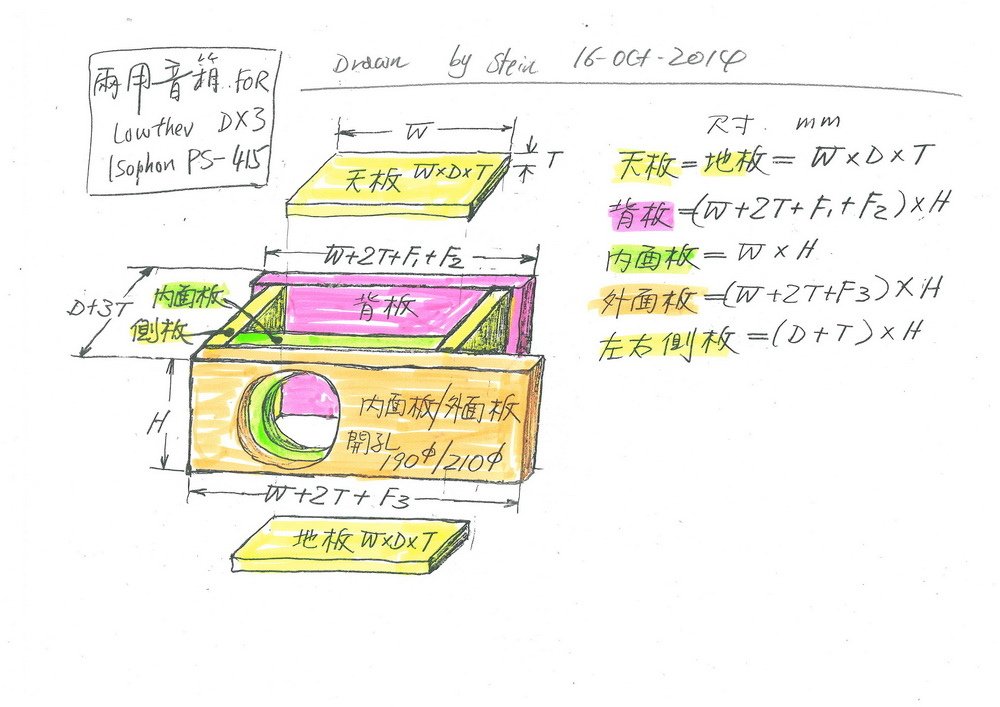 兩用音箱 FOR
Lowther DX3
Isophon PS-415
Drawn by Stein 16-Oct-2014
尺寸 mm
天板=地板= W×D×T
背板=(W+2T+F₁+F₂)×H
内面板= W×H
外面板=(W+2T+F3)×H
左右側板=(D+T)×H
W
T
天板 W×D×T
W+2T+F₁+F₂
D+3T
内面板
側板
背板
H
内面板/外面板
開孔
190ф/210ф
W+2T+F3
地板 W×D×T